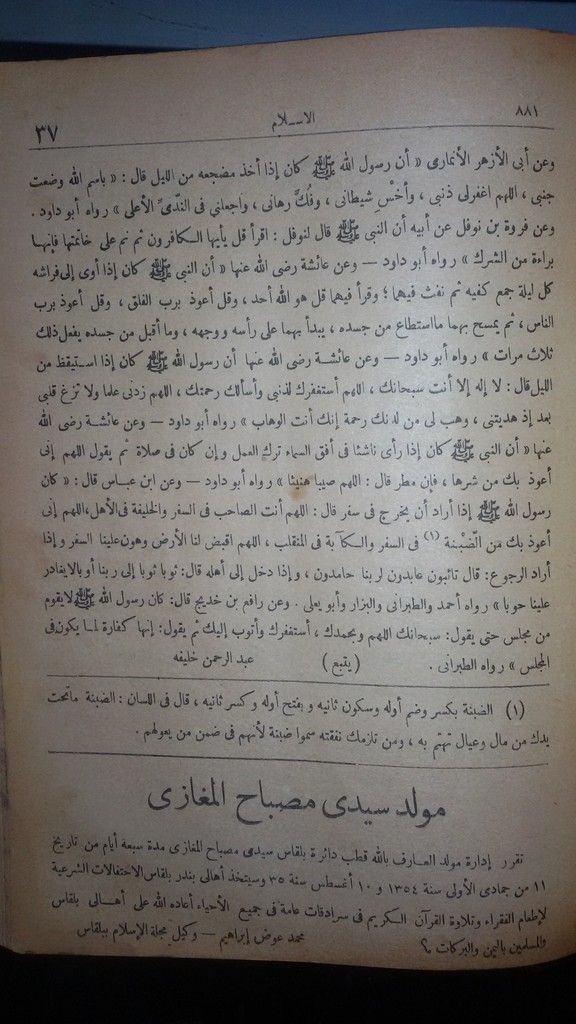 ٨٨١ الاسـلام ٣٧
وعن أبى الأزهر الأنمارى « أن رسول الله ﷺ كان إذا أخذ مضجعه من الليل قال : « باسم الله وضعت
جنبى ، اللهم اغفرلى ذنبى ، وأخْسِ شيطانى ، وفُكَّ رهانى ، واجعلنى فى النَّدىِّ الأعلى » رواه أبو داود .
وعن فروة بن نوفل عن أبيه أن النبى ﷺ قال لنوفل : اقرأ قل يأيها الـكافرون ثم نم على خاتمتها فإنهـا
براءة من الشرك » رواه أبو داود — وعن عائشة رضى الله عنها « أن النبى ﷺ كان إذا أوى إلى فراشه
كل ليلة جمع كفيه ثم نفث فيهما ؛ وقرأ فيهما قل هو الله أحد ، وقل أعوذ برب الفلق ، وقل أعوذ برب
الناس ، ثم يمسح بهما مااستطاع من جسده ، يبدأ بهما على رأسه ووجهه ، وما أقبل من جسده يفعل ذلك
ثلاث مرات » رواه أبو داود — وعن عائشـة رضى الله عنها أن رسول الله ﷺ كان إذا اسـتيقظ من
الليل قال : لا إله إلا أنت سبحانك ، اللهم أستغفرك لذنبى وأسألك رحمتك ، اللهم زدنى علما ولا تزغ قلبى
بعد إذ هديتنى ، وهب لى من لدنك رحمة إنك أنت الوهاب » رواه أبو داود — وعن عائشـة رضى الله
عنها « أن النبى ﷺ كان إذا رأى ناشئا فى أفق السماء ترك العمل وإن كان فى صلاة ثم يقول اللهم إنى
أعوذ بك من شرها ، فإن مطر قال : اللهم صيبا هنيئا » رواه أبو داود — وعن ابن عبـاس قال : « كان
رسول الله ﷺ إذا أراد أن يخرج فى سفر قال : اللهم أنت الصاحب فى السفر والخليفة فى الأهل، اللهم إنى
أعوذ بك من الضبنة (١) فى السفر والكآبة فى المنقلب ، اللهم اقبض لنا الأرض وهون علينا السفر وإذا
أراد الرجوع : قال تائبون عابدون لربنا حامدون ، وإذا دخل إلى أهله قال : توبا توبا إلى ربنا أوبا لا يغادر
علينا حوبا » رواه أحمد والطبرانى والبزار وأبو يعلى . وعن رافع بن خديج قال : كان رسول الله ﷺ لا يقوم
من مجلس حتى يقول : سبحانك اللهم وبحمدك ، أستغفرك وأتوب إليك ثم يقول : إنها كفارة لما يكون فى
المجلس » رواه الطبرانى . ( يتبع ) عبد الرحمن خليفه
(١) الضبنة بكسر وضم أوله وسكون ثانيه وبفتح أوله وكسر ثانيه ، قال فى اللسان : الضبنة ماتحت
يدك من مال وعيال تهتم به ، ومن تلزمك نفقته سموا ضبنة لأنهم فى ضمن من يعولهم .
مولد سيدى مصباح المغازى
تقرر إدارة مولد العـارف بالله قطب دائرة بلقاس سيدى مصباح المغازى مدة سبعة أيام من تاريخ
١١ من جمادى الأولى سنة ١٣٥٤ و ١٠ أغسطس سنة ٣٥ وسيتخذ أهالى بندر بلقاس الاحتفالات الشرعية
لإطعام الفقراء وتلاوة القرآن الـكريم فى سرادقات عامة فى جميع الأحياء أعاده الله على أهـالى بلقاس
والمسلمين باليمن والبركات ؟ محمد عوض إبراهيم — وكيل مجلة الإسلام ببلقاس